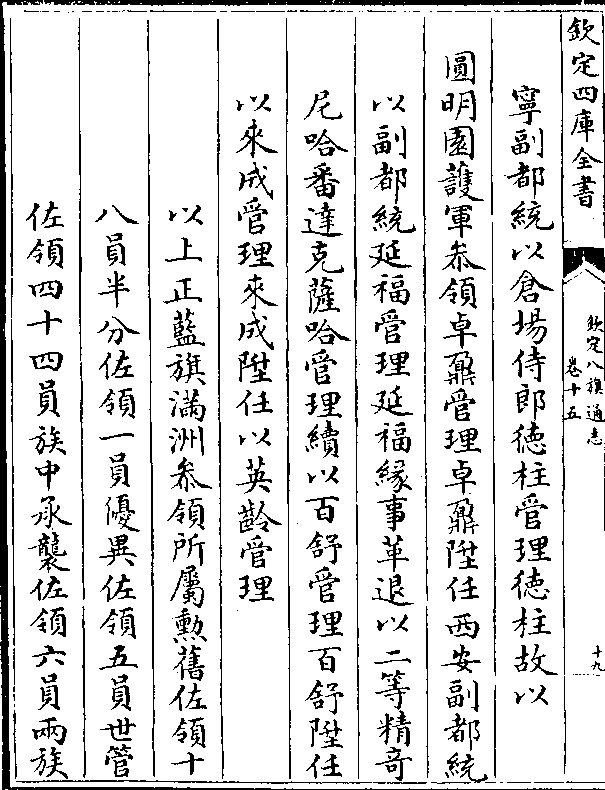 欽定四庫全書
欽定八旗通志
卷十五
十九
寧副都統以倉場侍郎德柱管理德柱故以
圓明園護軍叅領卓鼐管理卓鼐陞任西安副都統
以副都統延福管理延福緣事革退以二等精奇
尼哈番達克薩哈管理續以百舒管理百舒陞任
以來成管理來成陞任以英齡管理
以上正藍旗滿洲叅領所屬勲舊佐領十
八員半分佐領一員優異佐領五員世管
佐領四十四員族中承襲佐領六員兩族